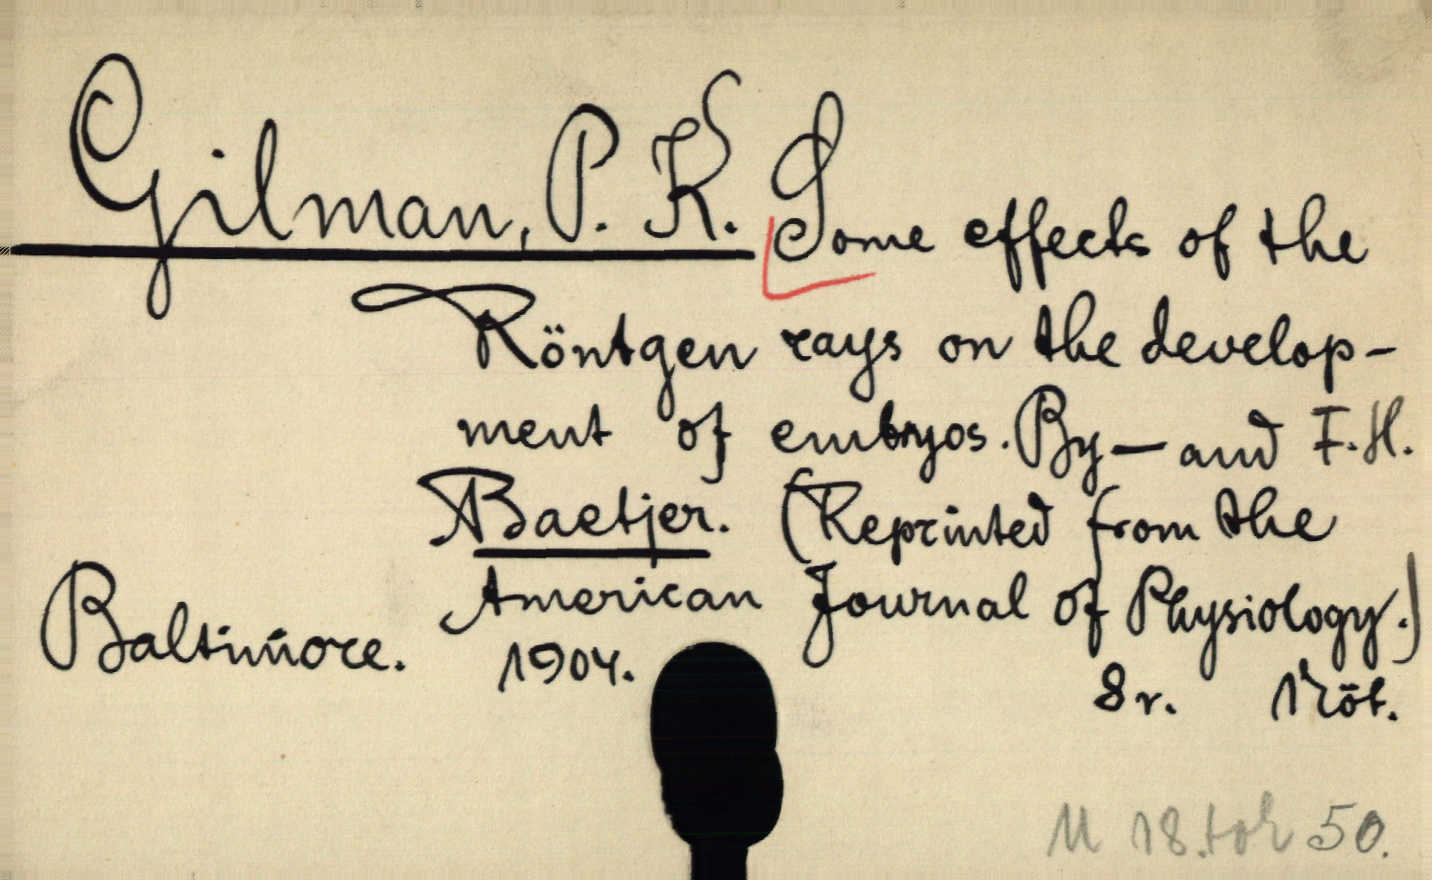 Gilman, P. K. Some effects of the
Röntgen rays on the develop-
ment of embryos. By — and F. H.
Baetjer. (Reprinted from the
American Journal of Physiology.)
Baltimore. 1904.
8r. 1 köt.
M 18.
50.